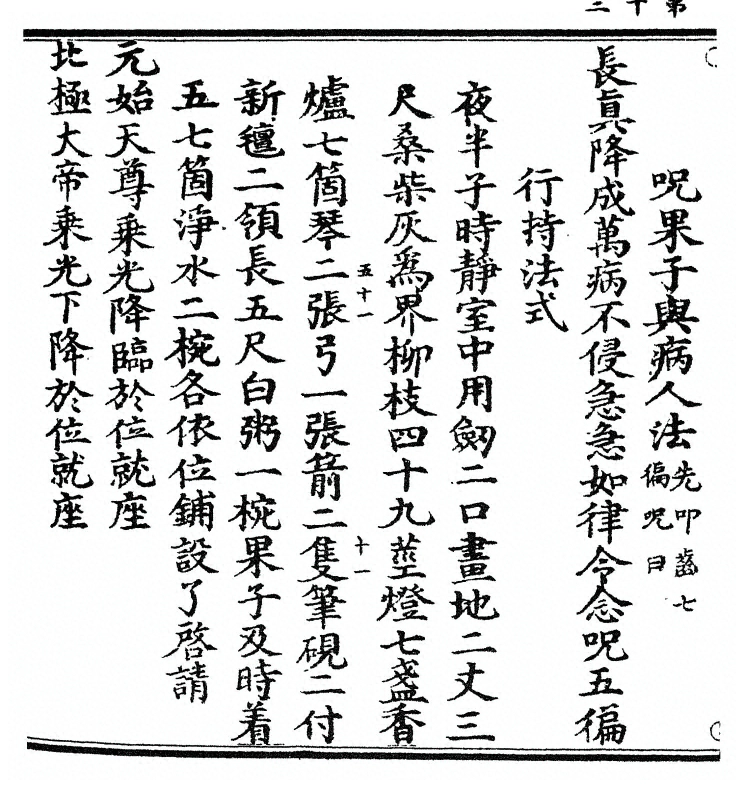 第十三
呪果子與病人法先叩齒七徧呪曰
長眞降成萬病不侵急急如律令念呪五徧
行持法式
夜半子時靜室中用劒二口畫地二丈三
尺桑柴灰爲界柳枝四十九莖燈七盞香
爐七箇琴二張五十一弓一張箭二隻十一筆硯二付
新氊二領長五尺白粥一椀果子及時着
五七箇淨水二椀各依位鋪設了啓請
元始天尊乘光降臨於位就座
北極大帝乘光下降於位就座